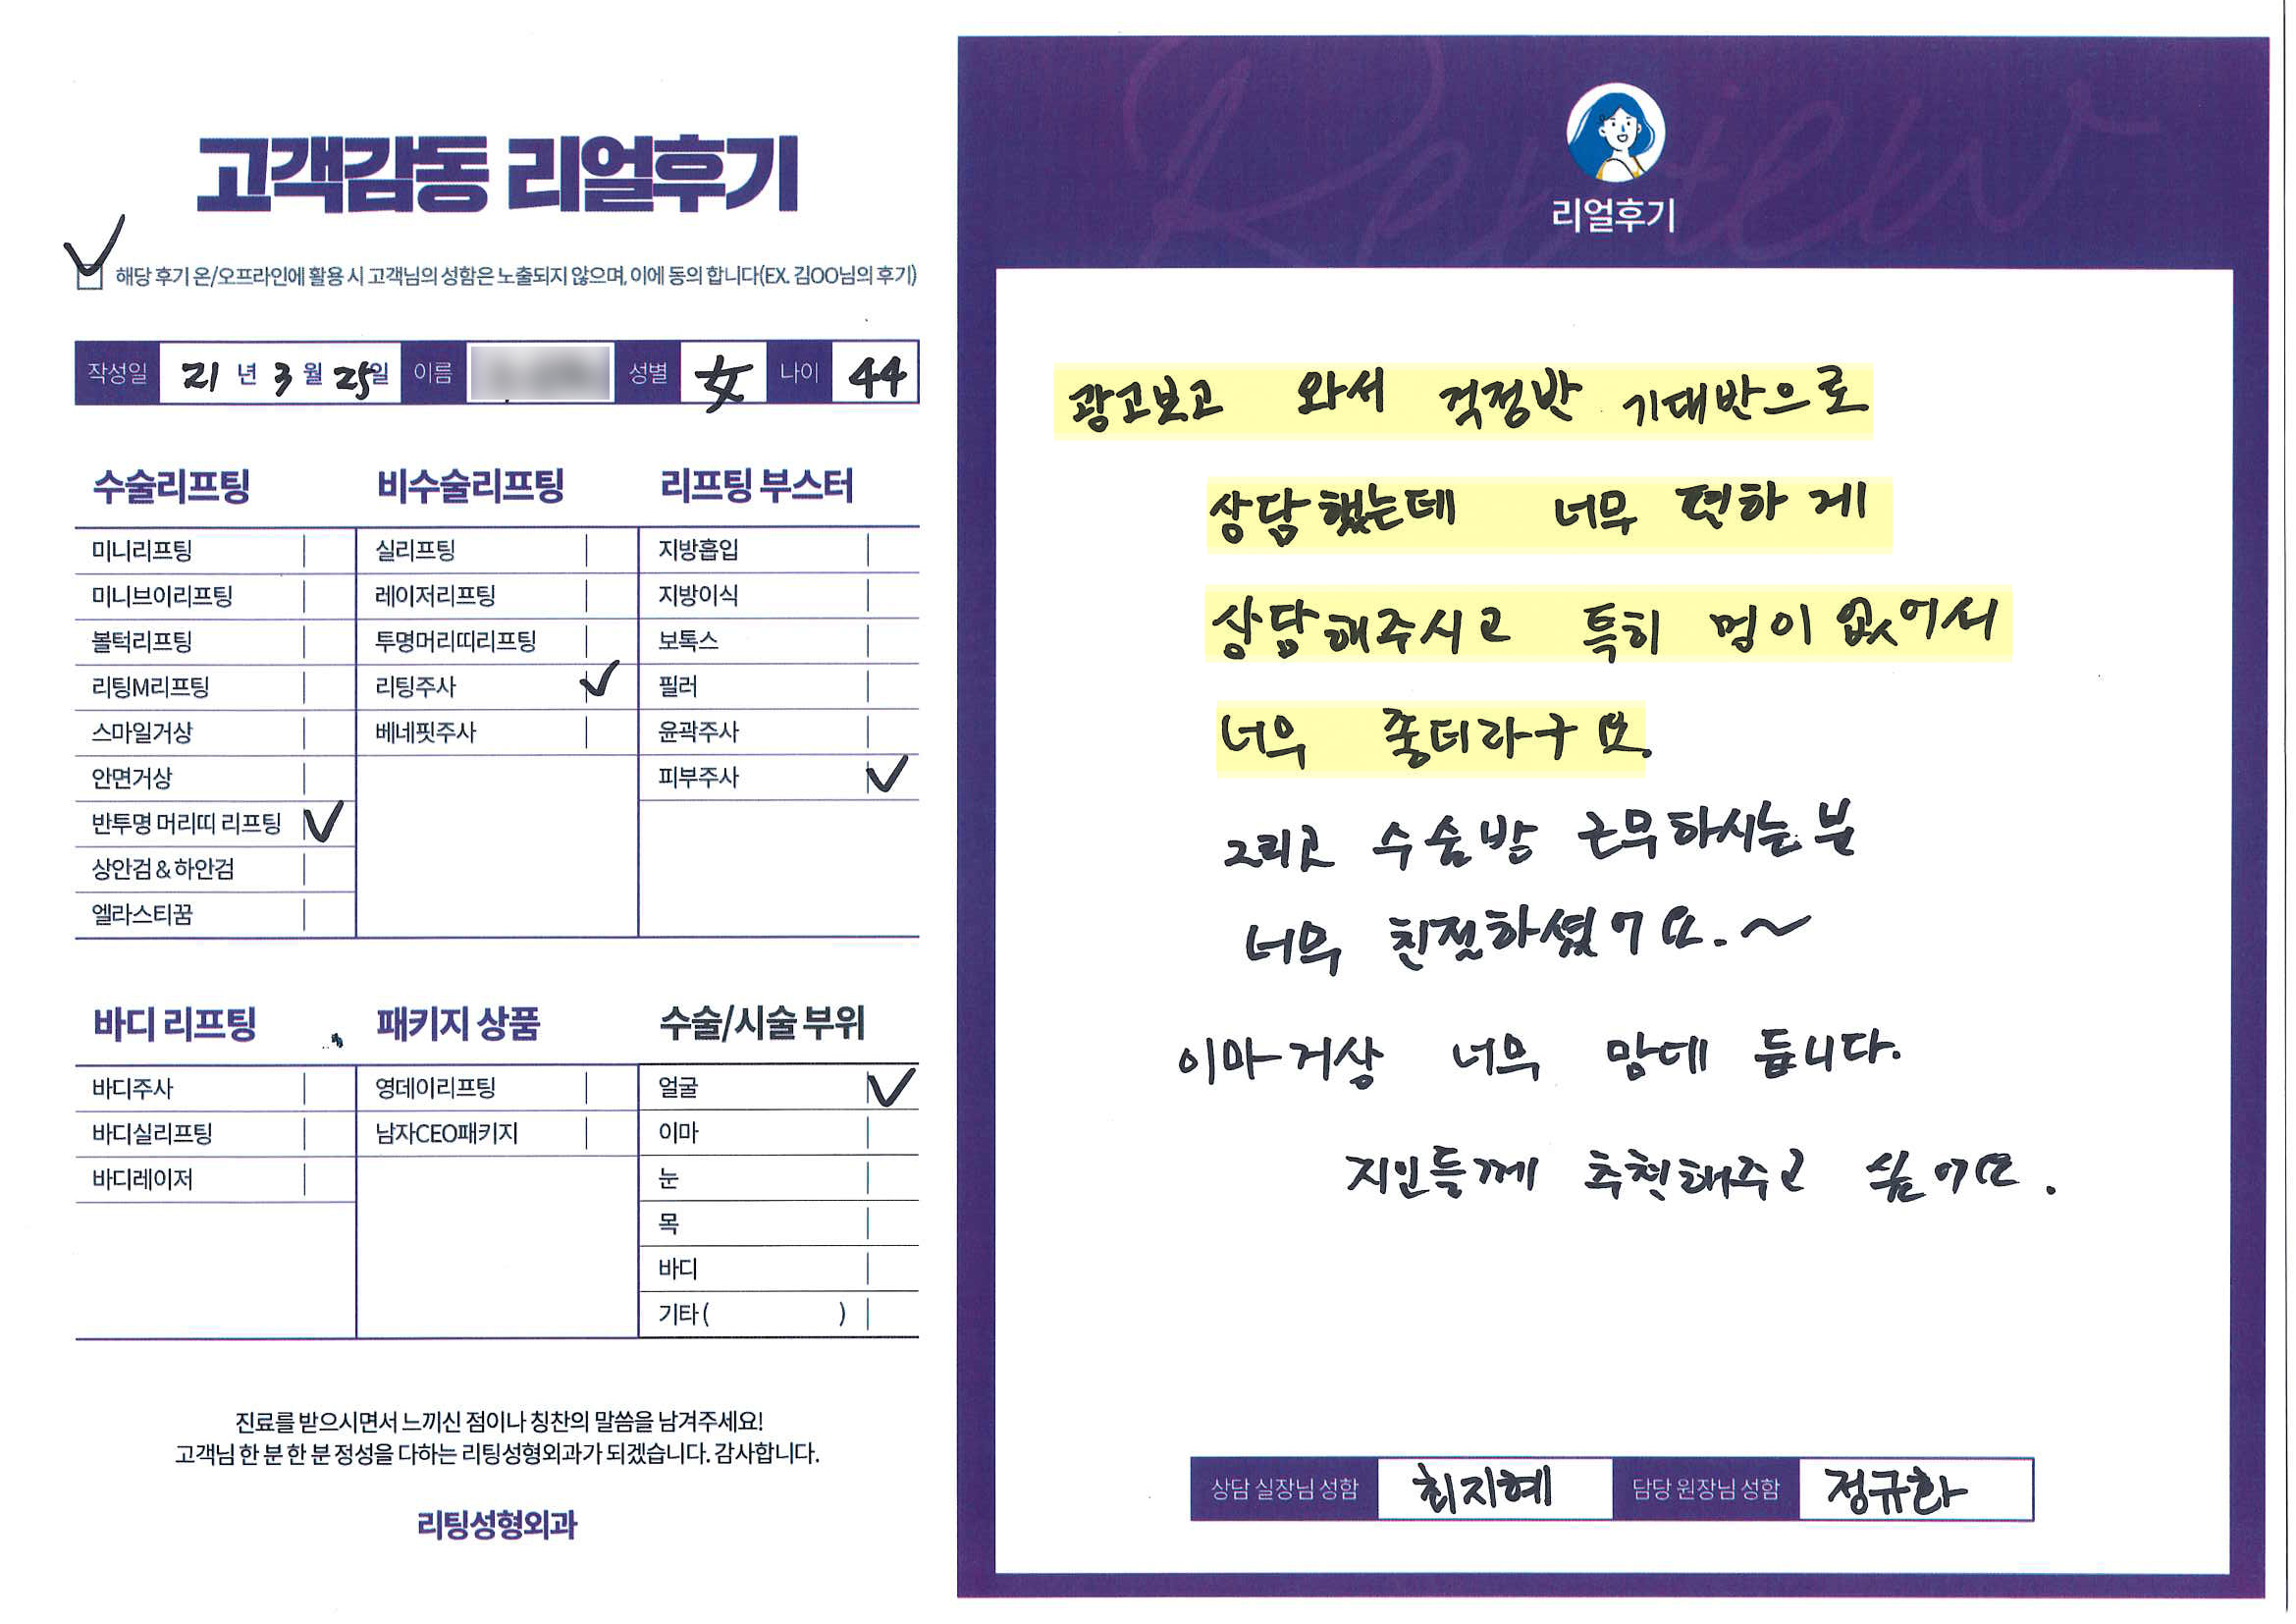 고객감동 리얼후기
해당 후기 온/오프라인에 활용 시 고객님의 성함은 노출되지 않으며, 이에 동의 합니다(EX. 김OO님의 후기)
작성일 21 년 3 월 25일 이름 성별 女 나이 44
수술리프팅
미니리프팅
미니브이리프팅
볼턱리프팅
리팅M리프팅
스마일거상
안면거상
반투명 머리띠 리프팅
상안검 & 하안검
엘라스티꿈
비수술리프팅
실리프팅
레이저리프팅
투명머리띠리프팅
리팅주사
베네핏주사
리프팅 부스터
지방흡입
지방이식
보톡스
필러
윤곽주사
피부주사
바디 리프팅
바디주사
바디실리프팅
바디레이저
패키지 상품
영데이리프팅
남자CEO패키지
수술/시술 부위
얼굴
이마
눈
목
바디
기타 ( )
진료를 받으시면서 느끼신 점이나 칭찬의 말씀을 남겨주세요!
고객님 한 분 한 분 정성을 다하는 리팅성형외과가 되겠습니다. 감사합니다.
리팅성형외과
Review
리얼후기
광고보고 와서 걱정반 기대반으로
상담했는데 너무 편하게
상담해주시고 특히 멍이 없어서
너무 좋더라구요.
그리고 수술방 근무하시는 분
너무 친절하셨어요.~
이마거상 너무 맘데 듭니다.
지인들께 추천해주고 싶어요.
상담 실장님 성함 최지혜 담당 원장님 성함 정규화